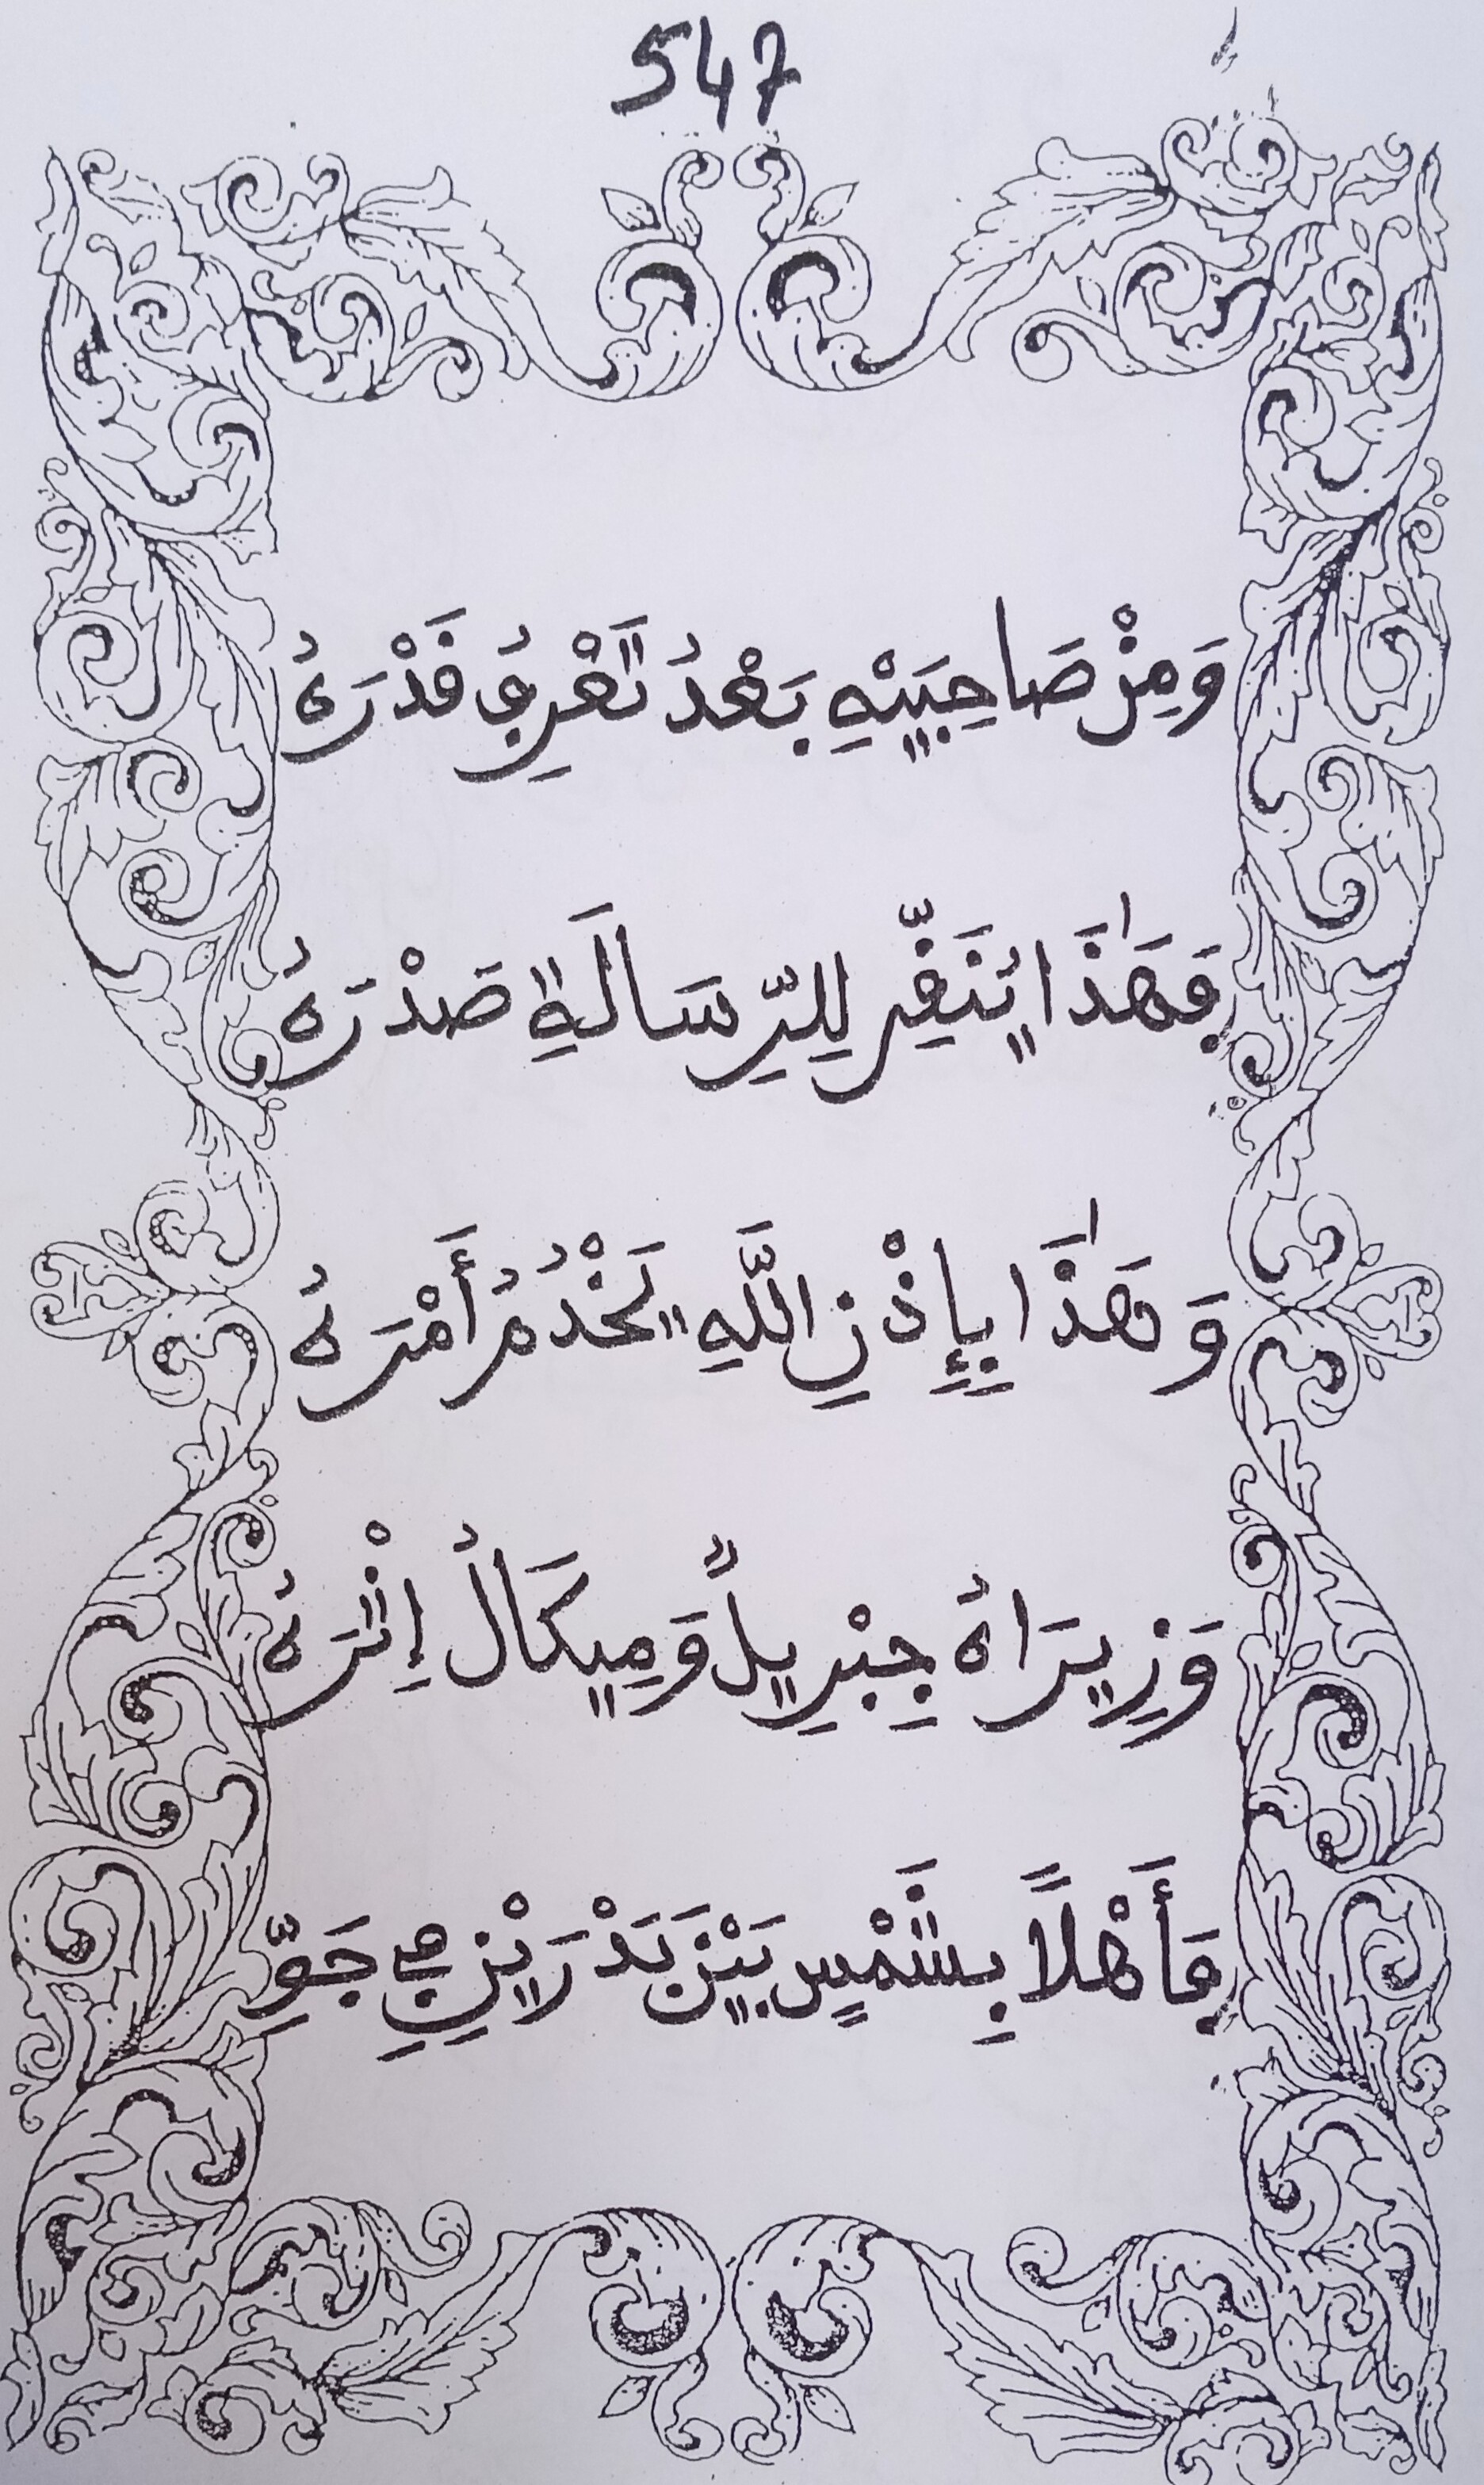 547
وَمِنْ صَاحِبَيْهِ بَعْدُ تَعْرِفُ قَدْرَهُ
فَهَٰذَا يُنَقِّي لِلرِّسَالَةِ صَدْرَهُ
وَهَٰذَا بِإِذْنِ اللَّهِ يَخْدُمُ أَمْرَهُ
وَزِيرَاهُ جِبْرِيلٌ وَمِيكَالُ إِثْرَهُ
فَأَهْلًا بِشَمْسٍ بَيْنَ بَدْرَيْنِ فِي جَوِّ